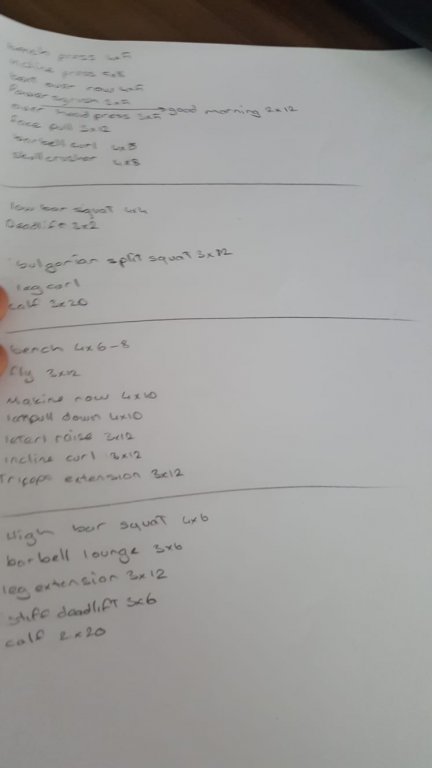 bench press 4x5
incline press 5x8
bent over row 4x5
Power 3x5
over head press 3x5 good morning 2x12
face pull 3x12
barbell curl 4x8
skullcrusher 4x8
low bar squat 4x4
Deadlift 3x2
bulgarian split squat 3x12
leg curl
calf 3x20
bench 4x6-8
fly 3x12
Makine row 4x10
pull down 4x10
raise 3x12
incline curl 3x12
Triceps extension 3x12
High bar squat 4x6
barbell lounge 3x6
leg extension 3x12
stiff deadlift 3x6
calf 2x20